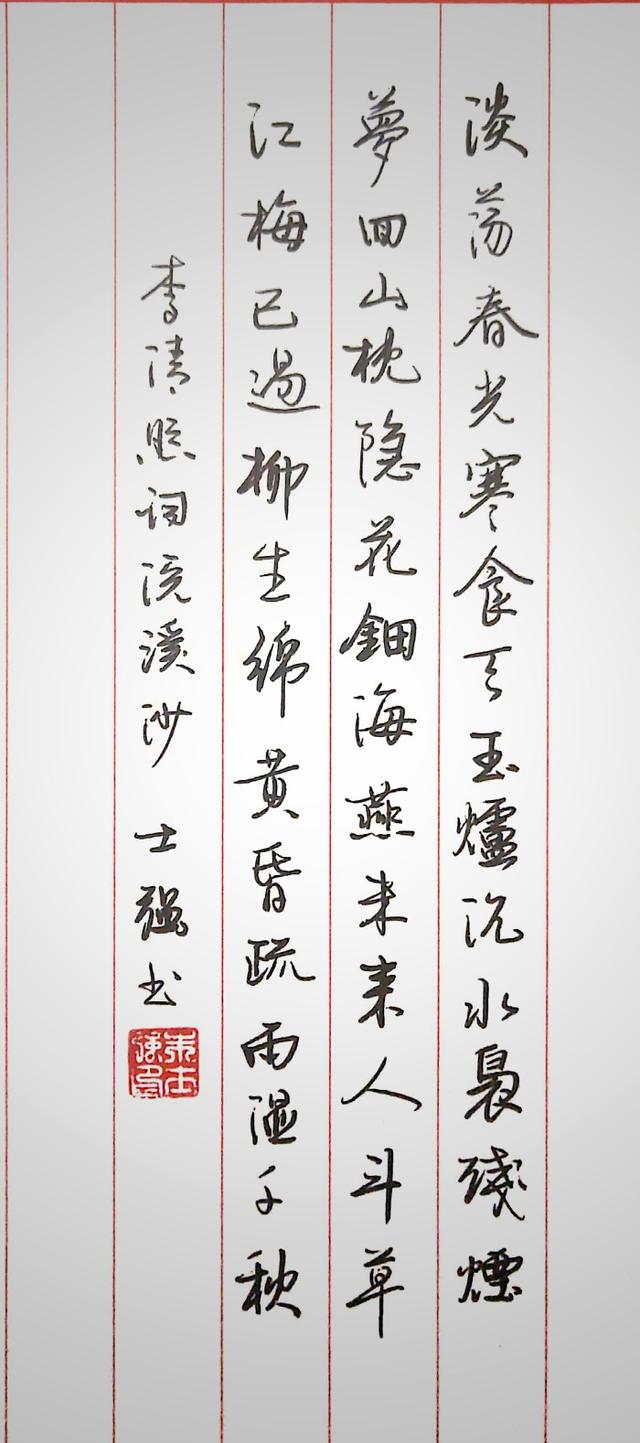 淡蕩春光寒食天玉爐沉水裊殘煙
夢回山枕隐花鈿海燕未来人斗草
江梅已過柳生綿黄昏疏雨濕千秋
李清照词浣溪沙 士强书